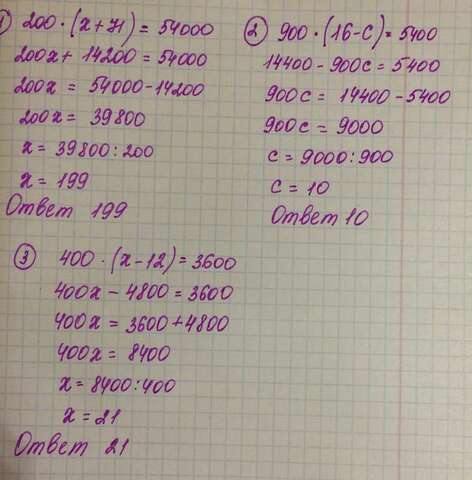 1) 200 · (x + 71) = 54000
200x + 14200 = 54000
200x = 54000 - 14200
200x = 39800
x = 39800 : 200
x = 199
Ответ 199
2 900 · (16 - c) = 5400
14400 - 900c = 5400
900c = 14400 - 5400
900c = 9000
c = 9000 : 900
c = 10
Ответ 10
3 400 · (x - 12) = 3600
400x - 4800 = 3600
400x = 3600 + 4800
400x = 8400
x = 8400 : 400
x = 21
Ответ 21